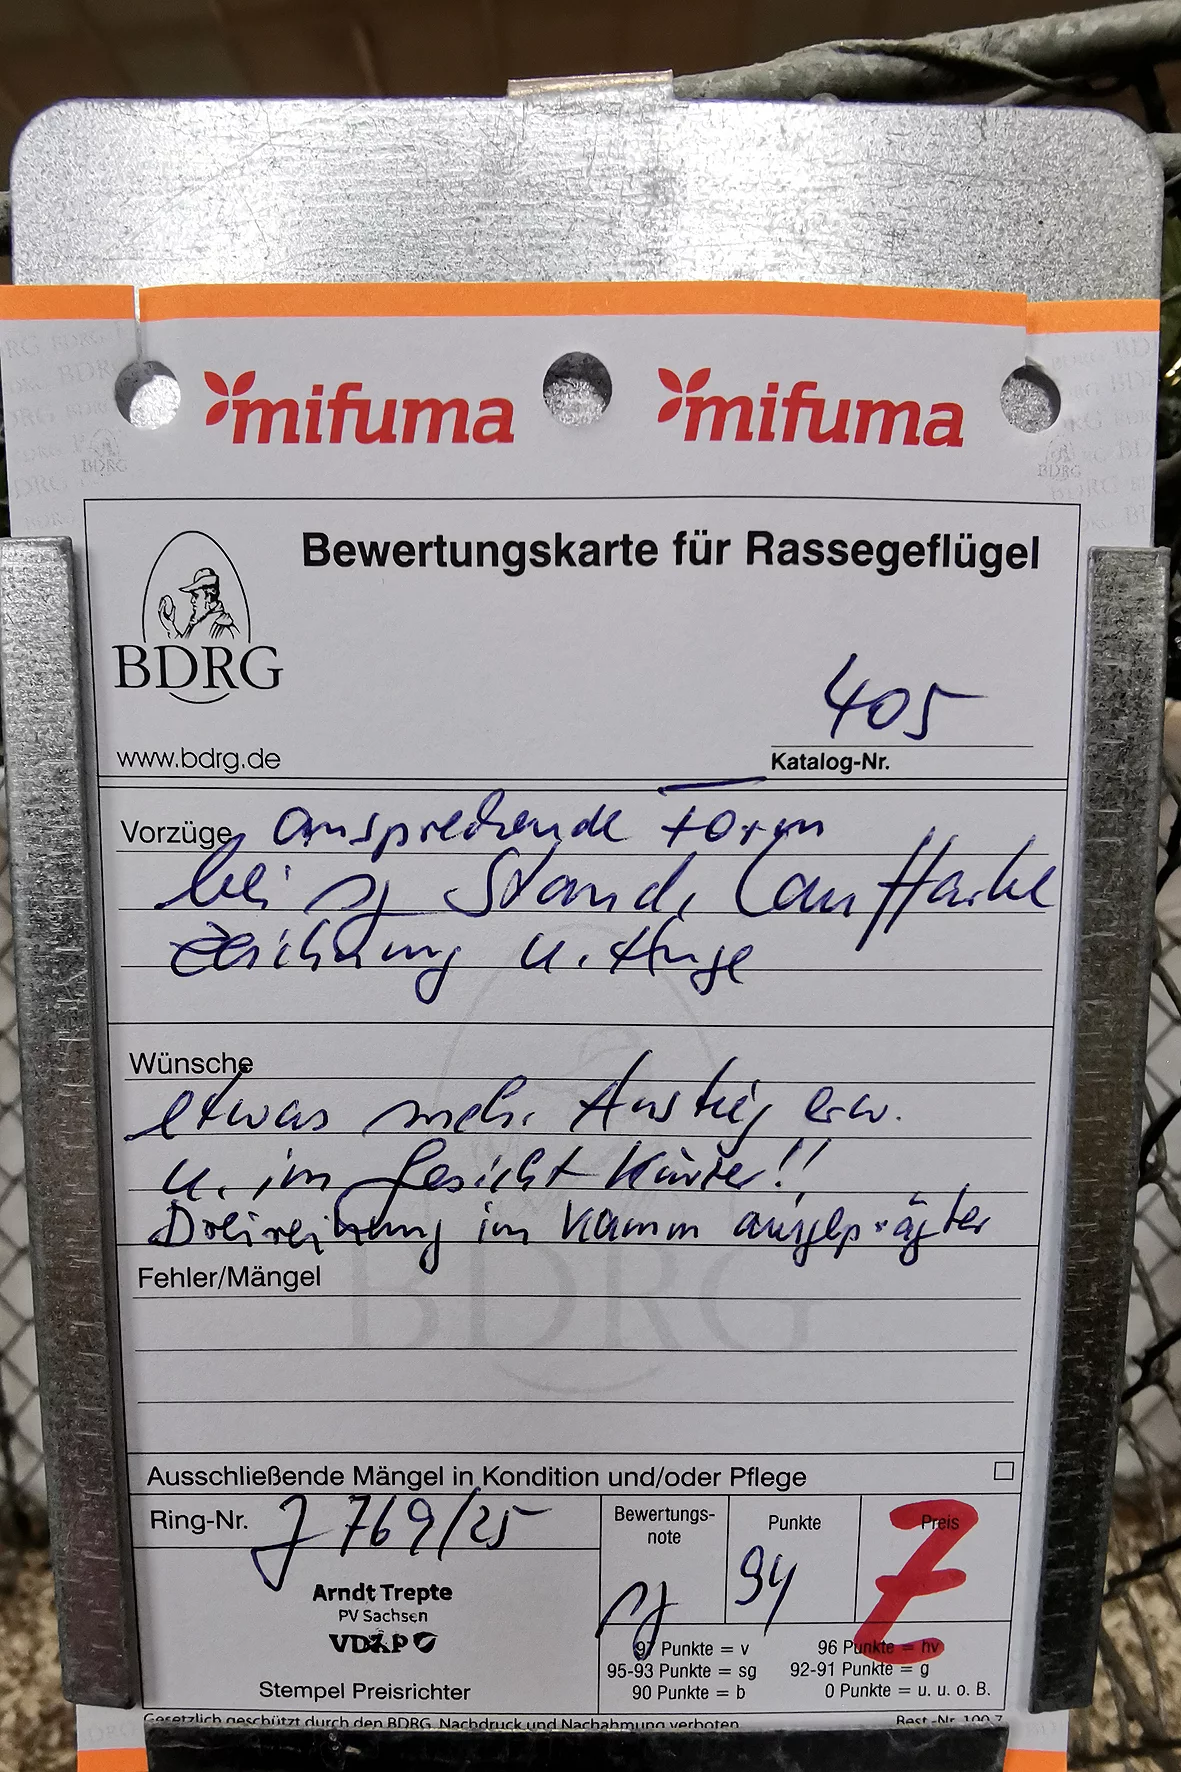 mifuma mifuma
Bewertungskarte für Rassegeflügel
BDRG
www.bdrg.de
405
Katalog-Nr.
Vorzüge ansprechende Form
bei sg Stand, Lauffarbe
Zeichnung u. Auge
Wünsche
etwas mehr Anstieg erw.
u. im Gesicht kürzer!!
Dreireihung im Kamm ausgeprägter
Fehler/Mängel
Ausschließende Mängel in Kondition und/oder Pflege
Ring-Nr. J 769/25
Bewertungs-
note
sg
Punkte
94
Preis
Z
Arndt Trepte
PV Sachsen
Stempel Preisrichter
97 Punkte = v 96 Punkte = hv
95-93 Punkte = sg 92-91 Punkte = g
90 Punkte = b 0 Punkte = u. u. o. B.
Gesetzlich geschützt durch den BDRG. Nachdruck und Nachahmung verboten. Best.-Nr. 100.7
BDRG